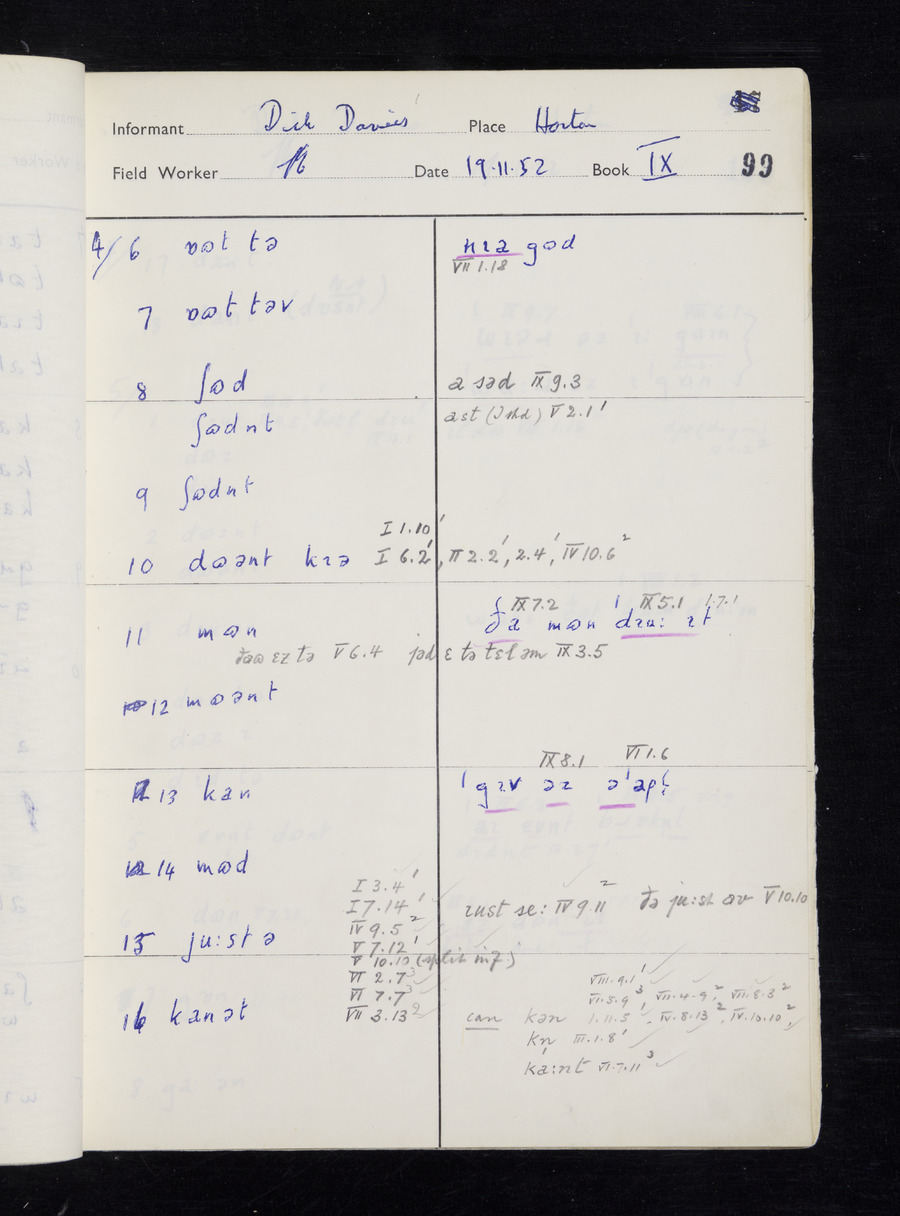 Informant Dick Davies Place Horton
Field Worker Date 19.11.52 Book IX 99
4/6 ɒɷt tə nɪə gɷd
VII 1.18
7 ɒɷt təv
8 ʃɷd a səd IX 9.3
ʃɷdnt ast (I shd) V 2.1'
9 ʃɷdnt
I 1.10'
10 dɷənt kɪə I 6.2', II 2.2', 2.4', IV 10.6²
IX 7.2 IX 5.1 1.7.1
11 mɷn ðə mɷn dɪu: ɪt
ðaɷ ɛz tə V 6.4 jəd ɛ tə tɛl əm IX 3.5
12 mɷənt
IX 8.1 VI 1.6
13 kan 'gɪv əz ə'apʃ
14 mɷd
I 3.4'
I 7.14' ɪust se: IV 9.11² ðə ju:st əv V 10.10
IV 9.5²
15 ju:st ə V 7.12'
V 10.10 (split inf.)
VI 2.7³ VIII.9.1'
VI 7.7³ VI.5.9³, VII.4.9², VII.8.3²
16 kanət VII 3.13² can kən 1.11.5', IV.8.13², IV.10.10²,
kn̩ III.1.8'
ka:nt VI.7.11³